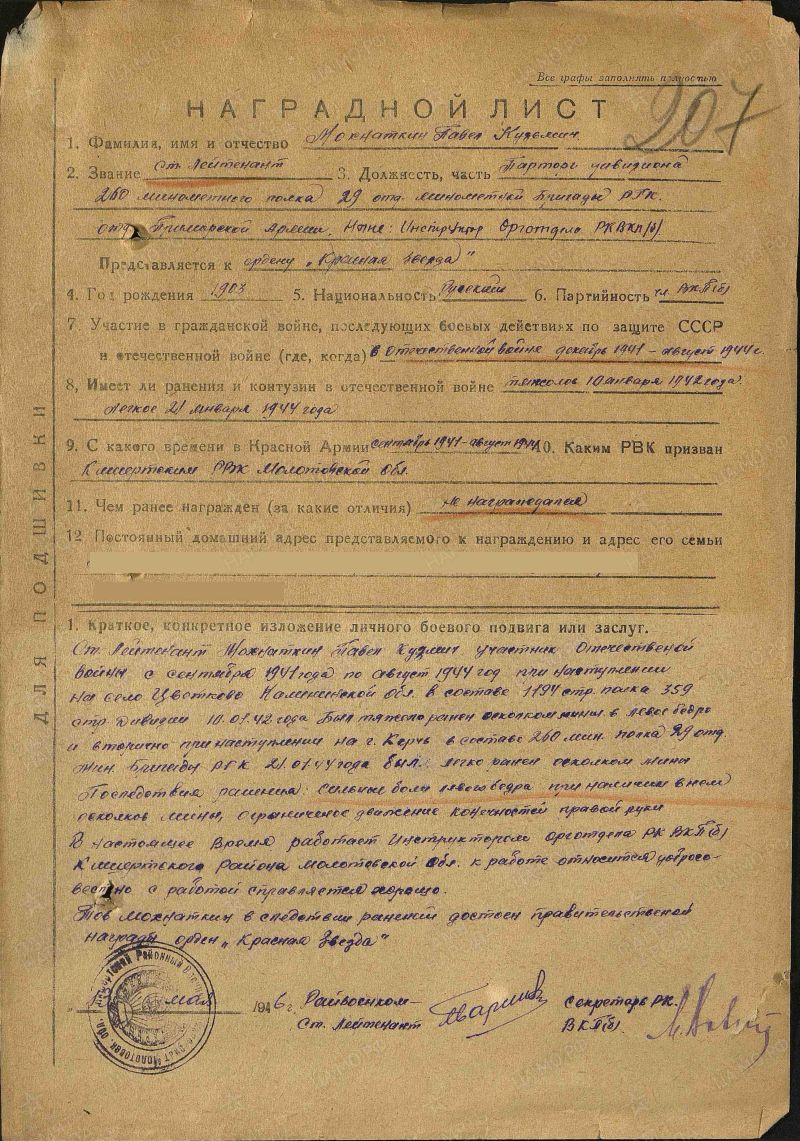 Все графы заполнять полностью
207
НАГРАДНОЙ ЛИСТ
1. Фамилия, имя и отчество Мохнаткин Павел Кузьмич
2. Звание Ст. Лейтенант 3. Должность, часть Парторг дивизиона
260 минометного полка 29 отд. минометной Бригады РГК.
отд. Приморской Армии. Ныне: Инструктор Орготдела РКВКП(б)
Представляется к ордену „Красная Звезда"
4. Год рождения 1903 5. Национальность Русский 6. Партийность чл. ВКП(б)
7. Участие в гражданской войне, последующих боевых действиях по защите СССР
и отечественной войне (где, когда) в Отечественной войне декабрь 1941 – август 1944 г.
8. Имеет ли ранения и контузии в отечественной войне тяжолое 10 января 1942 года
Легкое 21 января 1944 года
9. С какого времени в Красной Армии сентябрь 1941 – август 1944 10. Каким РВК призван
Кишертским РВК Молотовской Обл.
11. Чем ранее награжден (за какие отличия) не награждался
12. Постоянный домашний адрес представляемого к награждению и адрес его семьи
ДЛЯ ПОДШИВКИ
1. Краткое, конкретное изложение личного боевого подвига или заслуг.
Ст. Лейтенант Мохнаткин Павел Кузмич участник Отечественой
Войны с сентября 1941 года по август 1944 год при наступлении
на село Цветково Калининской Обл. в составе 1194 стр. полка 359
стр. Дивизии 10.01.42 года Был тяжело ранен осколком мины в левое бедро
и вторично при наступлении на г. Керчь в составе 260 мин. полка 29 отд.
Мин. Бригады РГК 21.01.44 года был легко ранен осколком мины
Последствия ранения: Сильные боли левого бедра при наличии в нем
осколков мины, ограниченое движение конечностей правой руки
В настоящее Время работает Инструктором орготдела РК ВКП(б)
Кишертского Района Молотовской Обл. к работе относится добросо-
вестно с работой справляется хорошо.
Тов Мохнаткин в следствии ранений достоен правительственой
награды орден „Красная Звезда"
мая 1946 г. Райвоенком – Секретарь РК.
Ст. Лейтенант ВКП(б)